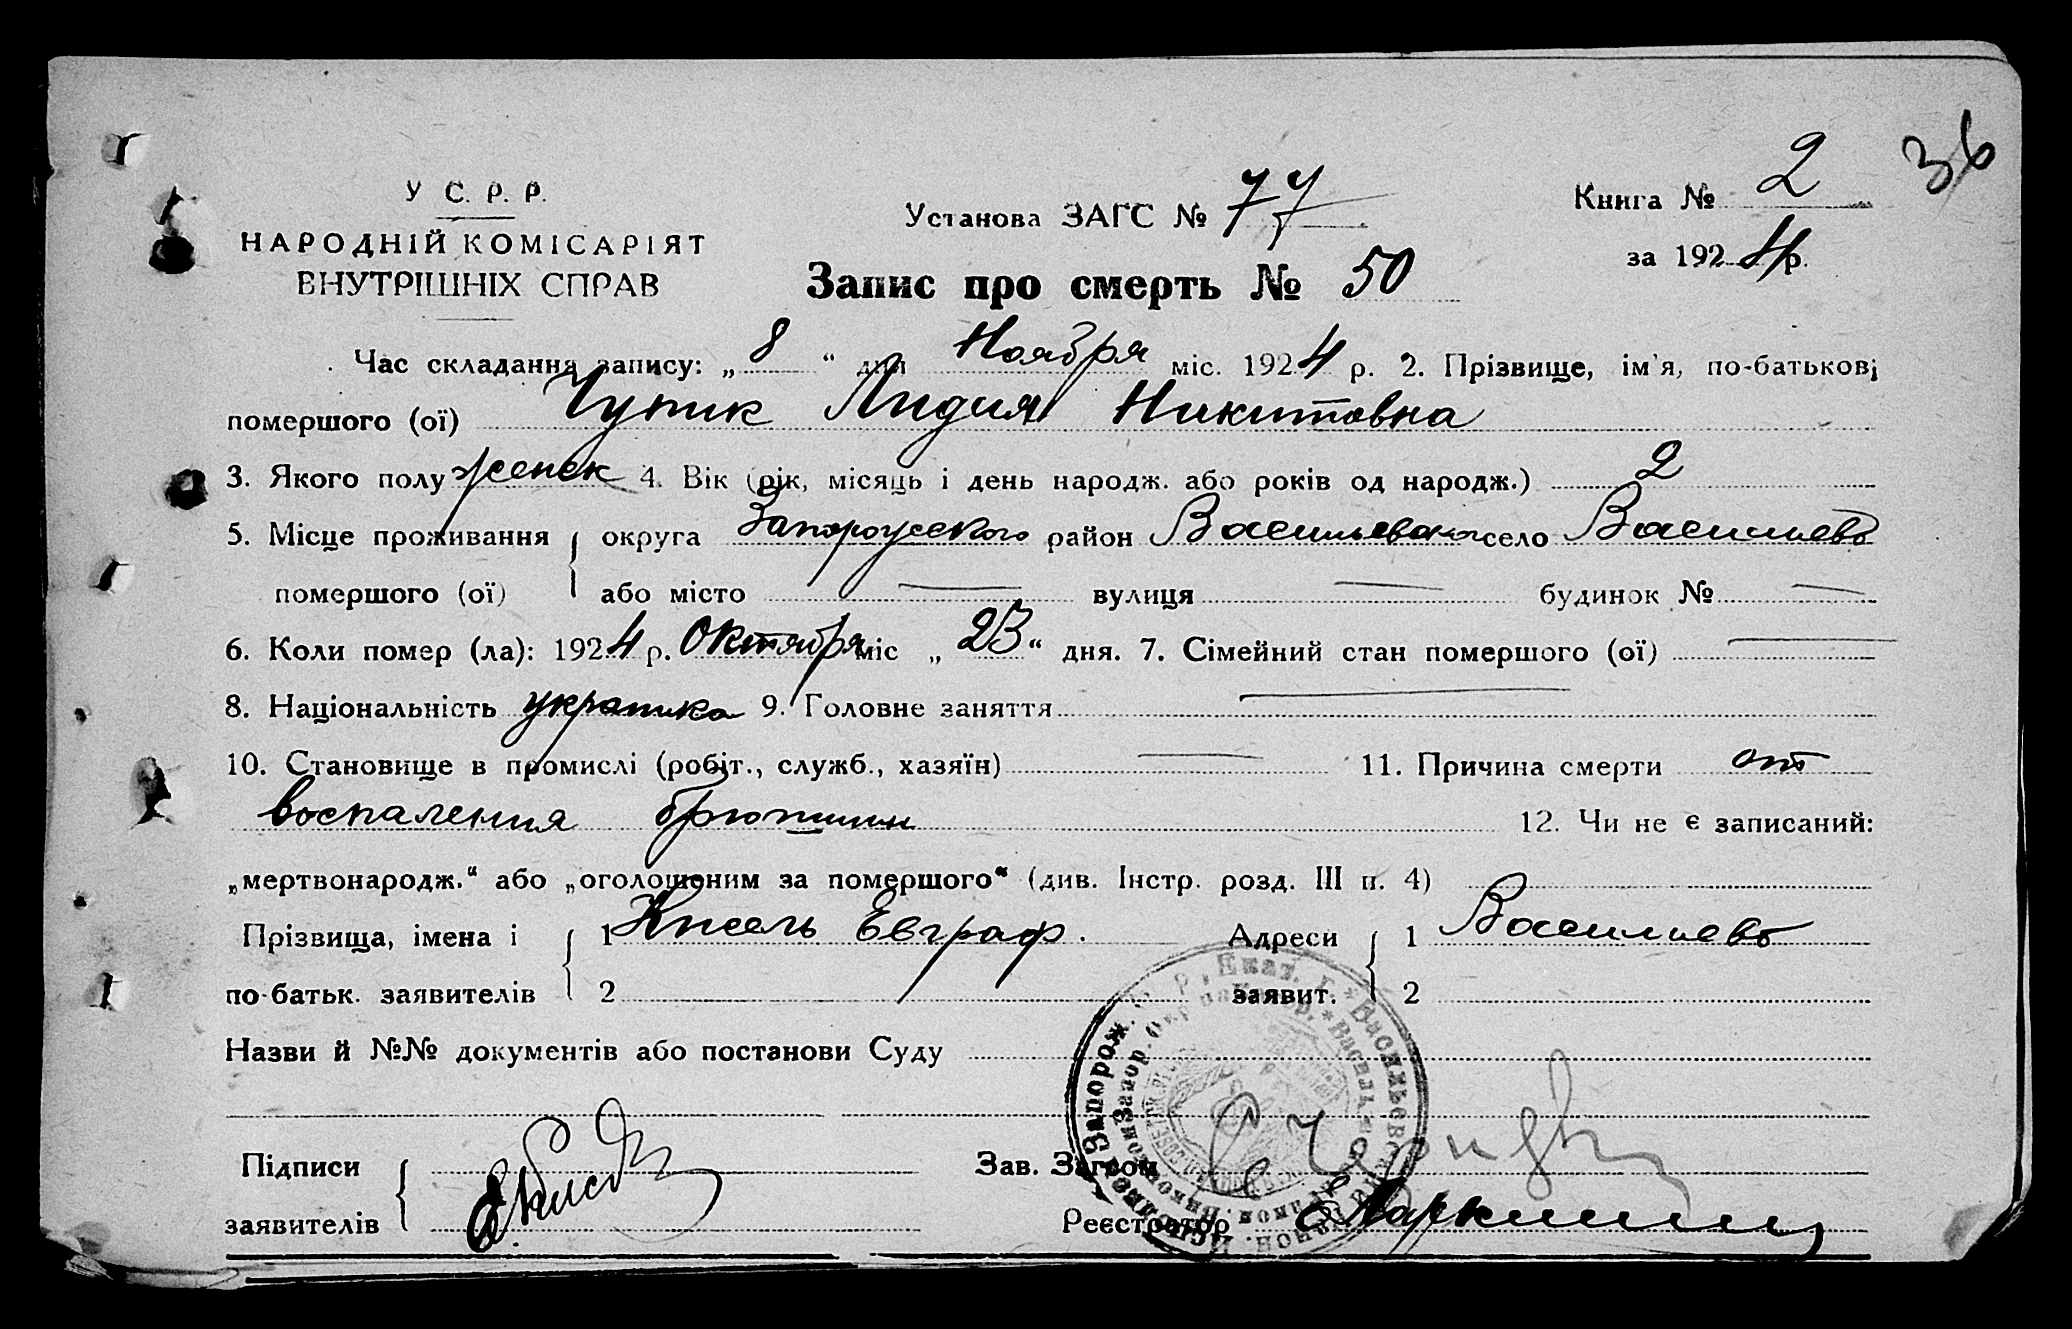 36
У С. Р. Р.
НАРОДНІЙ КОМІСАРІЯТ
ВНУТРІШНІХ СПРАВ
Установа ЗАГС № 77
Книга № 2
за 1924 р.
Запис про смерть № 50
Час складання запису: „ 8 “ дня Ноября міс. 1924 р. 2. Прізвище, ім'я, по-батькові
помершого (ої) Чупик Лидия Никитовна
3. Якого полу женск 4. Вік (рік, місяць і день народж. або років од народж.) 2
5. Місце проживання округа Запорожского район Васильевско село Васильевъ
помершого (ої) або місто — вулиця — будинок № —
6. Коли помер (ла): 1924 р. Октября міс „ 23 “ дня. 7. Сімейний стан помершого (ої) —
8. Національність украинка 9. Головне заняття —
10. Становище в промислі (робіт., служб., хазяїн) — 11. Причина смерти от
воспаления брюшины
12. Чи не є записаний:
„мертвонародж.“ або „оголошеним за помершого“ (див. Інстр. розд. III п. 4)
Прізвища, імена і 1 Кисель Евграф. Адреси 1 Васильевъ
по-батьк. заявителів 2 заявит. 2
Назви й №№ документів або постанови Суду
Підписи
заявителів
Зав. Загсом
Реєстратор